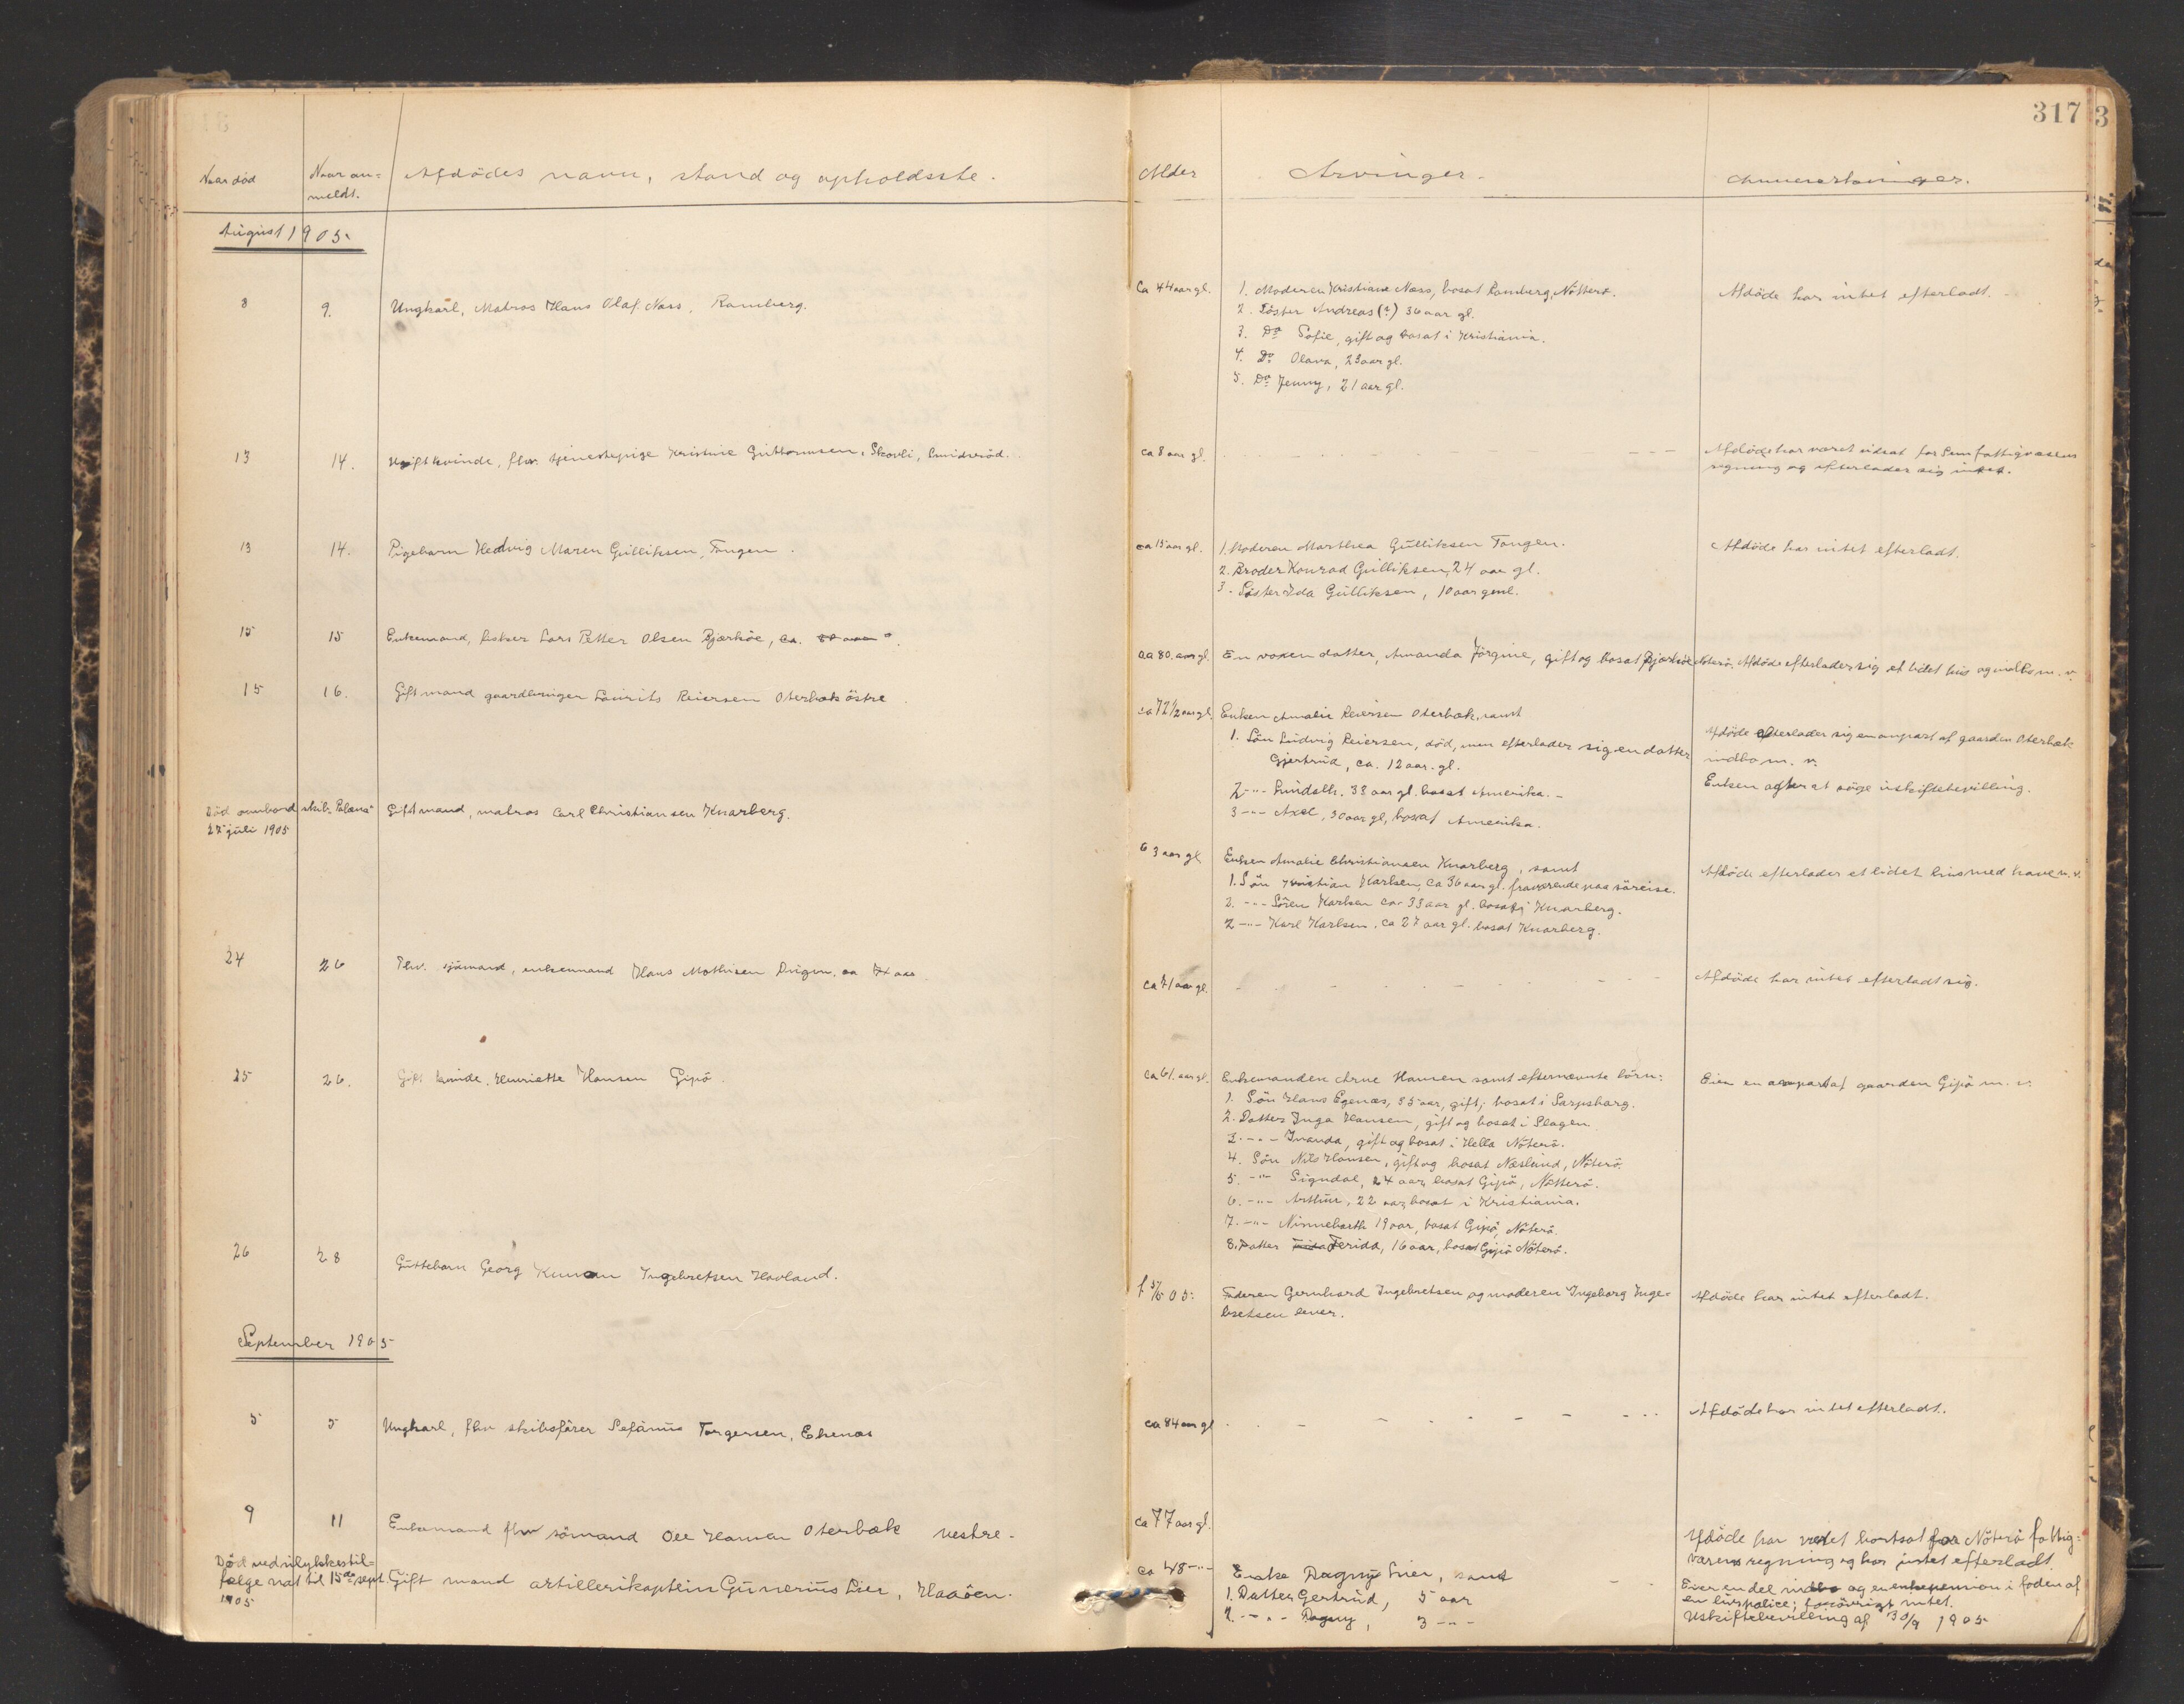 317
3
Naar død
Naar an=
meldt.
Afdödes navn, stand og opholdsste.
Alder
Arvinger.
Anmerkninger.
August 1905
8
9.
Ungkarl, Matros Hans Olaf Næss, Ramberg.
Ca 44 aar gl.
1. Moderen Kristiane Næss, bosat Ramberg, Nötterö.
2. Söster Andreas (?) 36 aar gl.
3. Do Sofie, gift og bosat i Kristiania.
4. Do Olava, 23 aar gl.
5. Do Jenny, 21 aar gl.
Afdöde har intet efterladt.
13
14.
Ugift kvinde, fhv. tjenestepige Kristine Guttormsen, Skovli,
ca 8 aar gl.
Afdöde har været udsat for Sem fattigvæsens
regning og efterlader sig intet.
13
14.
Pigebarn Hedvig Maren Gulliksen, Tangen.
ca 15 aar gl.
1. Moderen Marthea Gulliksen Tangen.
2. Broder Konrad Gulliksen, 24 aar gl.
3. Söster Ida Gulliksen, 10 aar gml.
Afdöde har intet efterladt.
15
15
Enkemand, fisker Lars Petter Olsen Bjerköe, ca.
ca 80 aar gl.
En voxen datter, Amanda Jörgine, gift og bosat Bjerköe Nöterö. Afdöde efterlader sig et lidet hus og indbo m. v.
15
16.
Gift mand gaardbruger Laurits Reiersen Oterbæk östre
ca 72 1/2 aar gl.
Enken Amalie Reiersen Oterbæk, samt
1. Sön Ludvig Reiersen, död, men efterlader sig en datter
Gjertrud, ca. 12 aar. gl.
2 -"- 33 aar gl. bosat Amerika. -
3 -"- Axel, 30 aar gl, bosat Amerika.
Afdöde efterlader sig en anpart af gaarden Oterbæk
indbo m. v.
Enken agter at söge uskiftebevilling.
Död ombord skib
27 juli 1905
Gift mand, matros Carl Christiansen Knarberg.
63 aar gl
Enken Amalie Christiansen Knarberg, samt
1. Sön Kristian Karlsen, ca 36 aar gl. fraværende paa söreise.
2. -"- Sören Karlsen ca 33 aar gl. bosat i Knarberg.
2 -"- Karl Karlsen, ca 27 aar gl. bosat Knarberg.
Afdöde efterlader et lidet hus med have m. v.
24
26
Fhv. sjömand, enkemand Hans Mathisen
ca 71 aar gl.
Afdöde har intet efterladt sig.
25
26.
Gift kvinde, Henriette Hansen Gipö.
ca 61. aar gl.
Enkemanden Arne Hansen samt efternævnte börn:
1. Sön Hans Egenæs, 35 aar, gift, bosat i Sarpsborg.
2. Datter Inga Hansen, gift og bosat i Slagen
3. -"- Inanda, gift og bosat i Hella Nöterö.
4. Sön Nils Hansen, gift og bosat Næslund, Nöterö.
5. -"- Sigvdal, 24 aar, bosat Gipö, Nötterö.
6. -"- Arthur, 22 aar, bosat i Kristiania.
7. -"- Ninnebarth 19 aar, bosat Gipö, Nöterö.
8. Datter Ferida, 16 aar, bosat Gipö Nöterö.
Eier en anpart af gaarden Gipö m. v.
26
28
Guttebarn Georg Ingebretsen Hovland.
f 5/6 05.
Faderen Gernhard Ingebretsen og moderen Ingeborg Inge-
bretsen lever.
Afdöde har intet efterladt.
September 1905
5
5
Ungkarl, fhv skibsförer Sefanius Torgersen, Ekenæs
ca 84 aar gl
Afdöde har intet efterladt.
9
11
Enkemand fhv sömand Ole Hansen Oterbæk vestre.
ca 77 aar gl.
Afdöde har været bortsat for Nöterö fattig=
væsens regning og har intet efterladt
Död ved ulykkestil=
fælge nat til 15de sept.
1905
Gift mand artillerikaptein Gunerius Lier, Haaöen.
ca 48 -"-
Enke Dagny Lier, samt
1. Datter Gertrud, 5 aar
2. -"- Dagny, 3 -"-
Eier en del indbo og en enkepension i foden af
en livspolice; forövrigt intet.
Uskiftebevilling af 30/9 1905